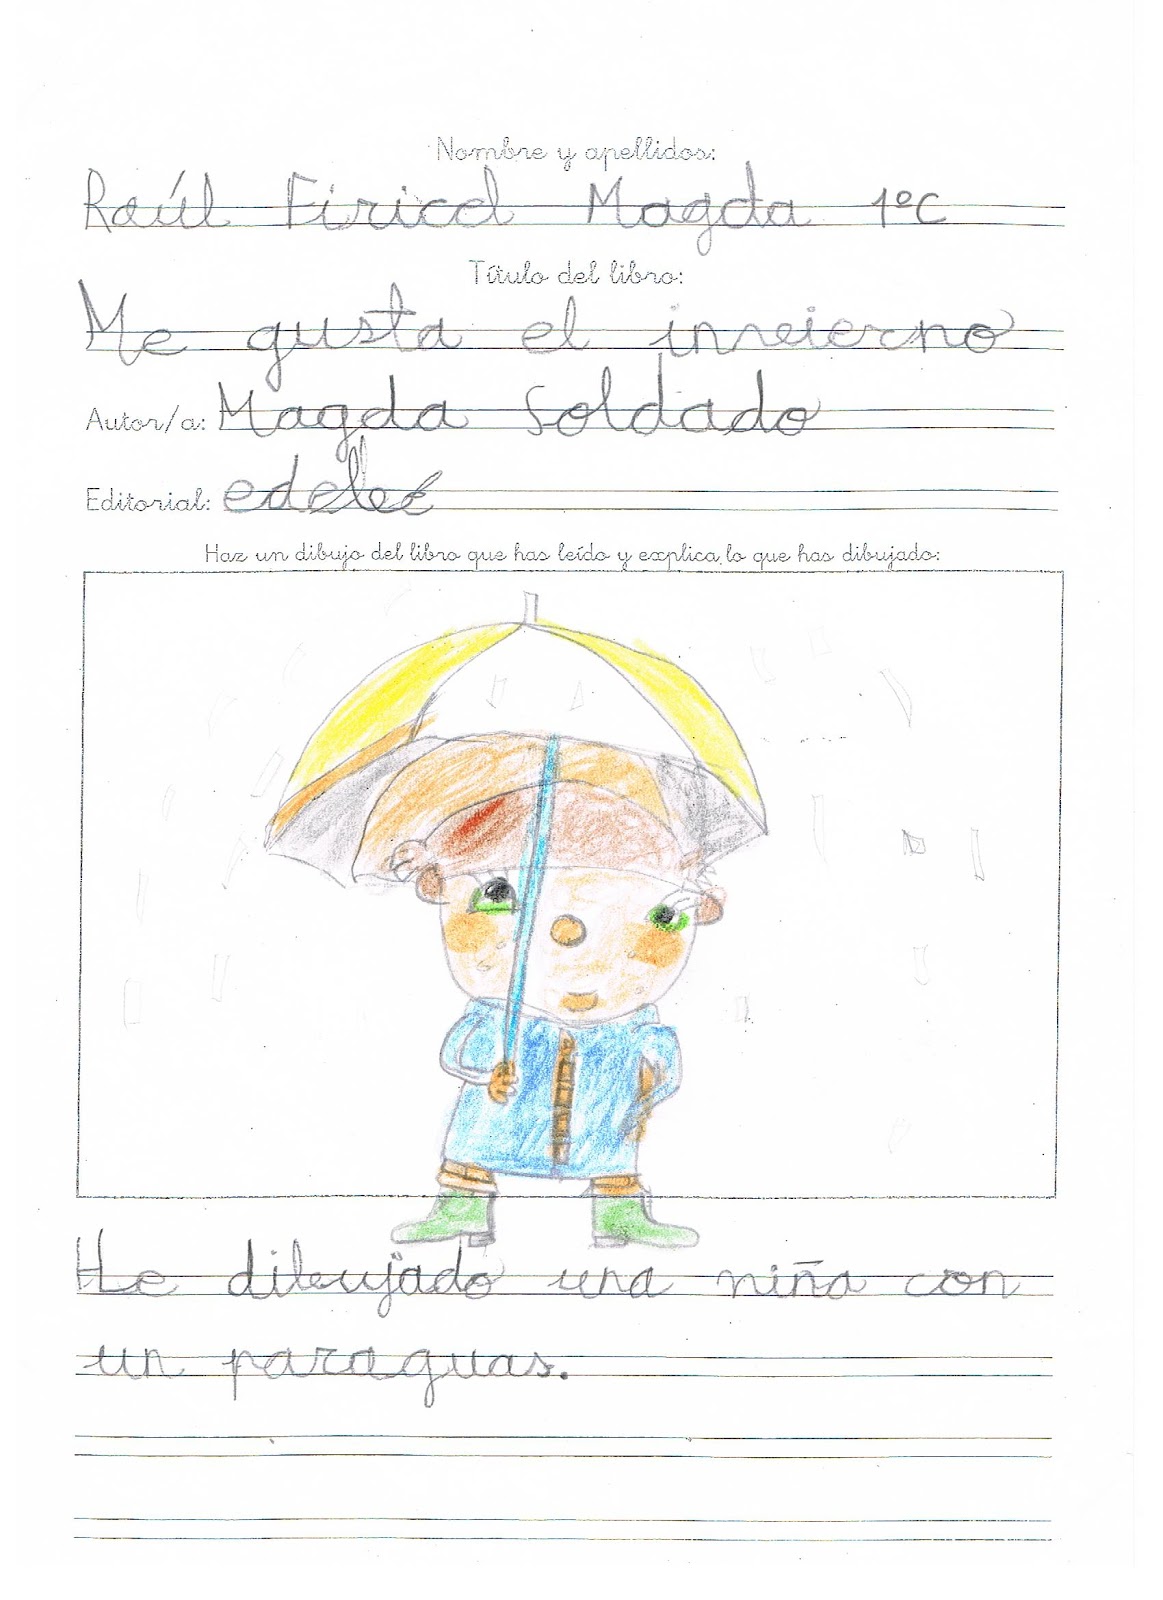 Nombre y apellidos:
Raúl Firicel Magda 1ºC
Título del libro:
Me gusta el invierno
Autor/a: Magda Soldado
Editorial: edebé
Haz un dibujo del libro que has leído y explica lo que has dibujado:
He dibujado una niña con
un paraguas.